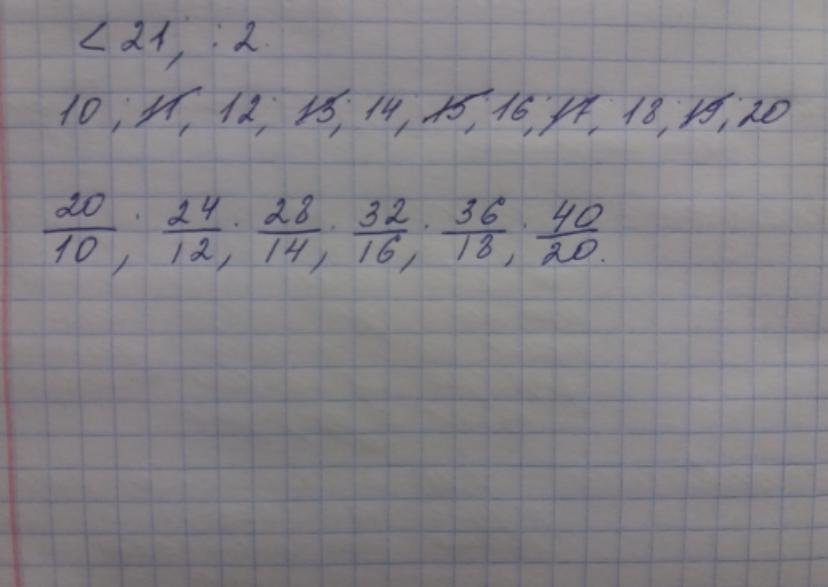 < 21, : 2.
10; 11, 12; 13; 14, 15, 16, 17, 18, 19, 20
20/10; 24/12; 28/14; 32/16; 36/18; 40/20.